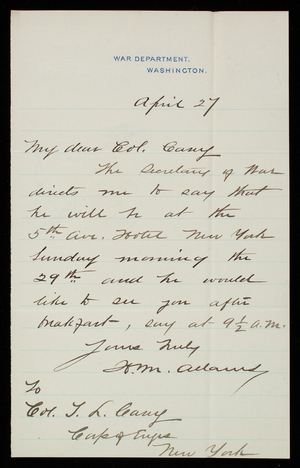 WAR DEPARTMENT.
WASHINGTON.
April 27
My dear Col. Casey
The Secretary of War
directs me to say that
he will be at the
5th Ave. Hotel New York
Sunday morning the
29th and he would
like to see you after
breakfast, say at 9 1/2 A.M.
Yours truly
H. M. Adams
To
Col. T. L. Casey
Corps of Engrs
New York